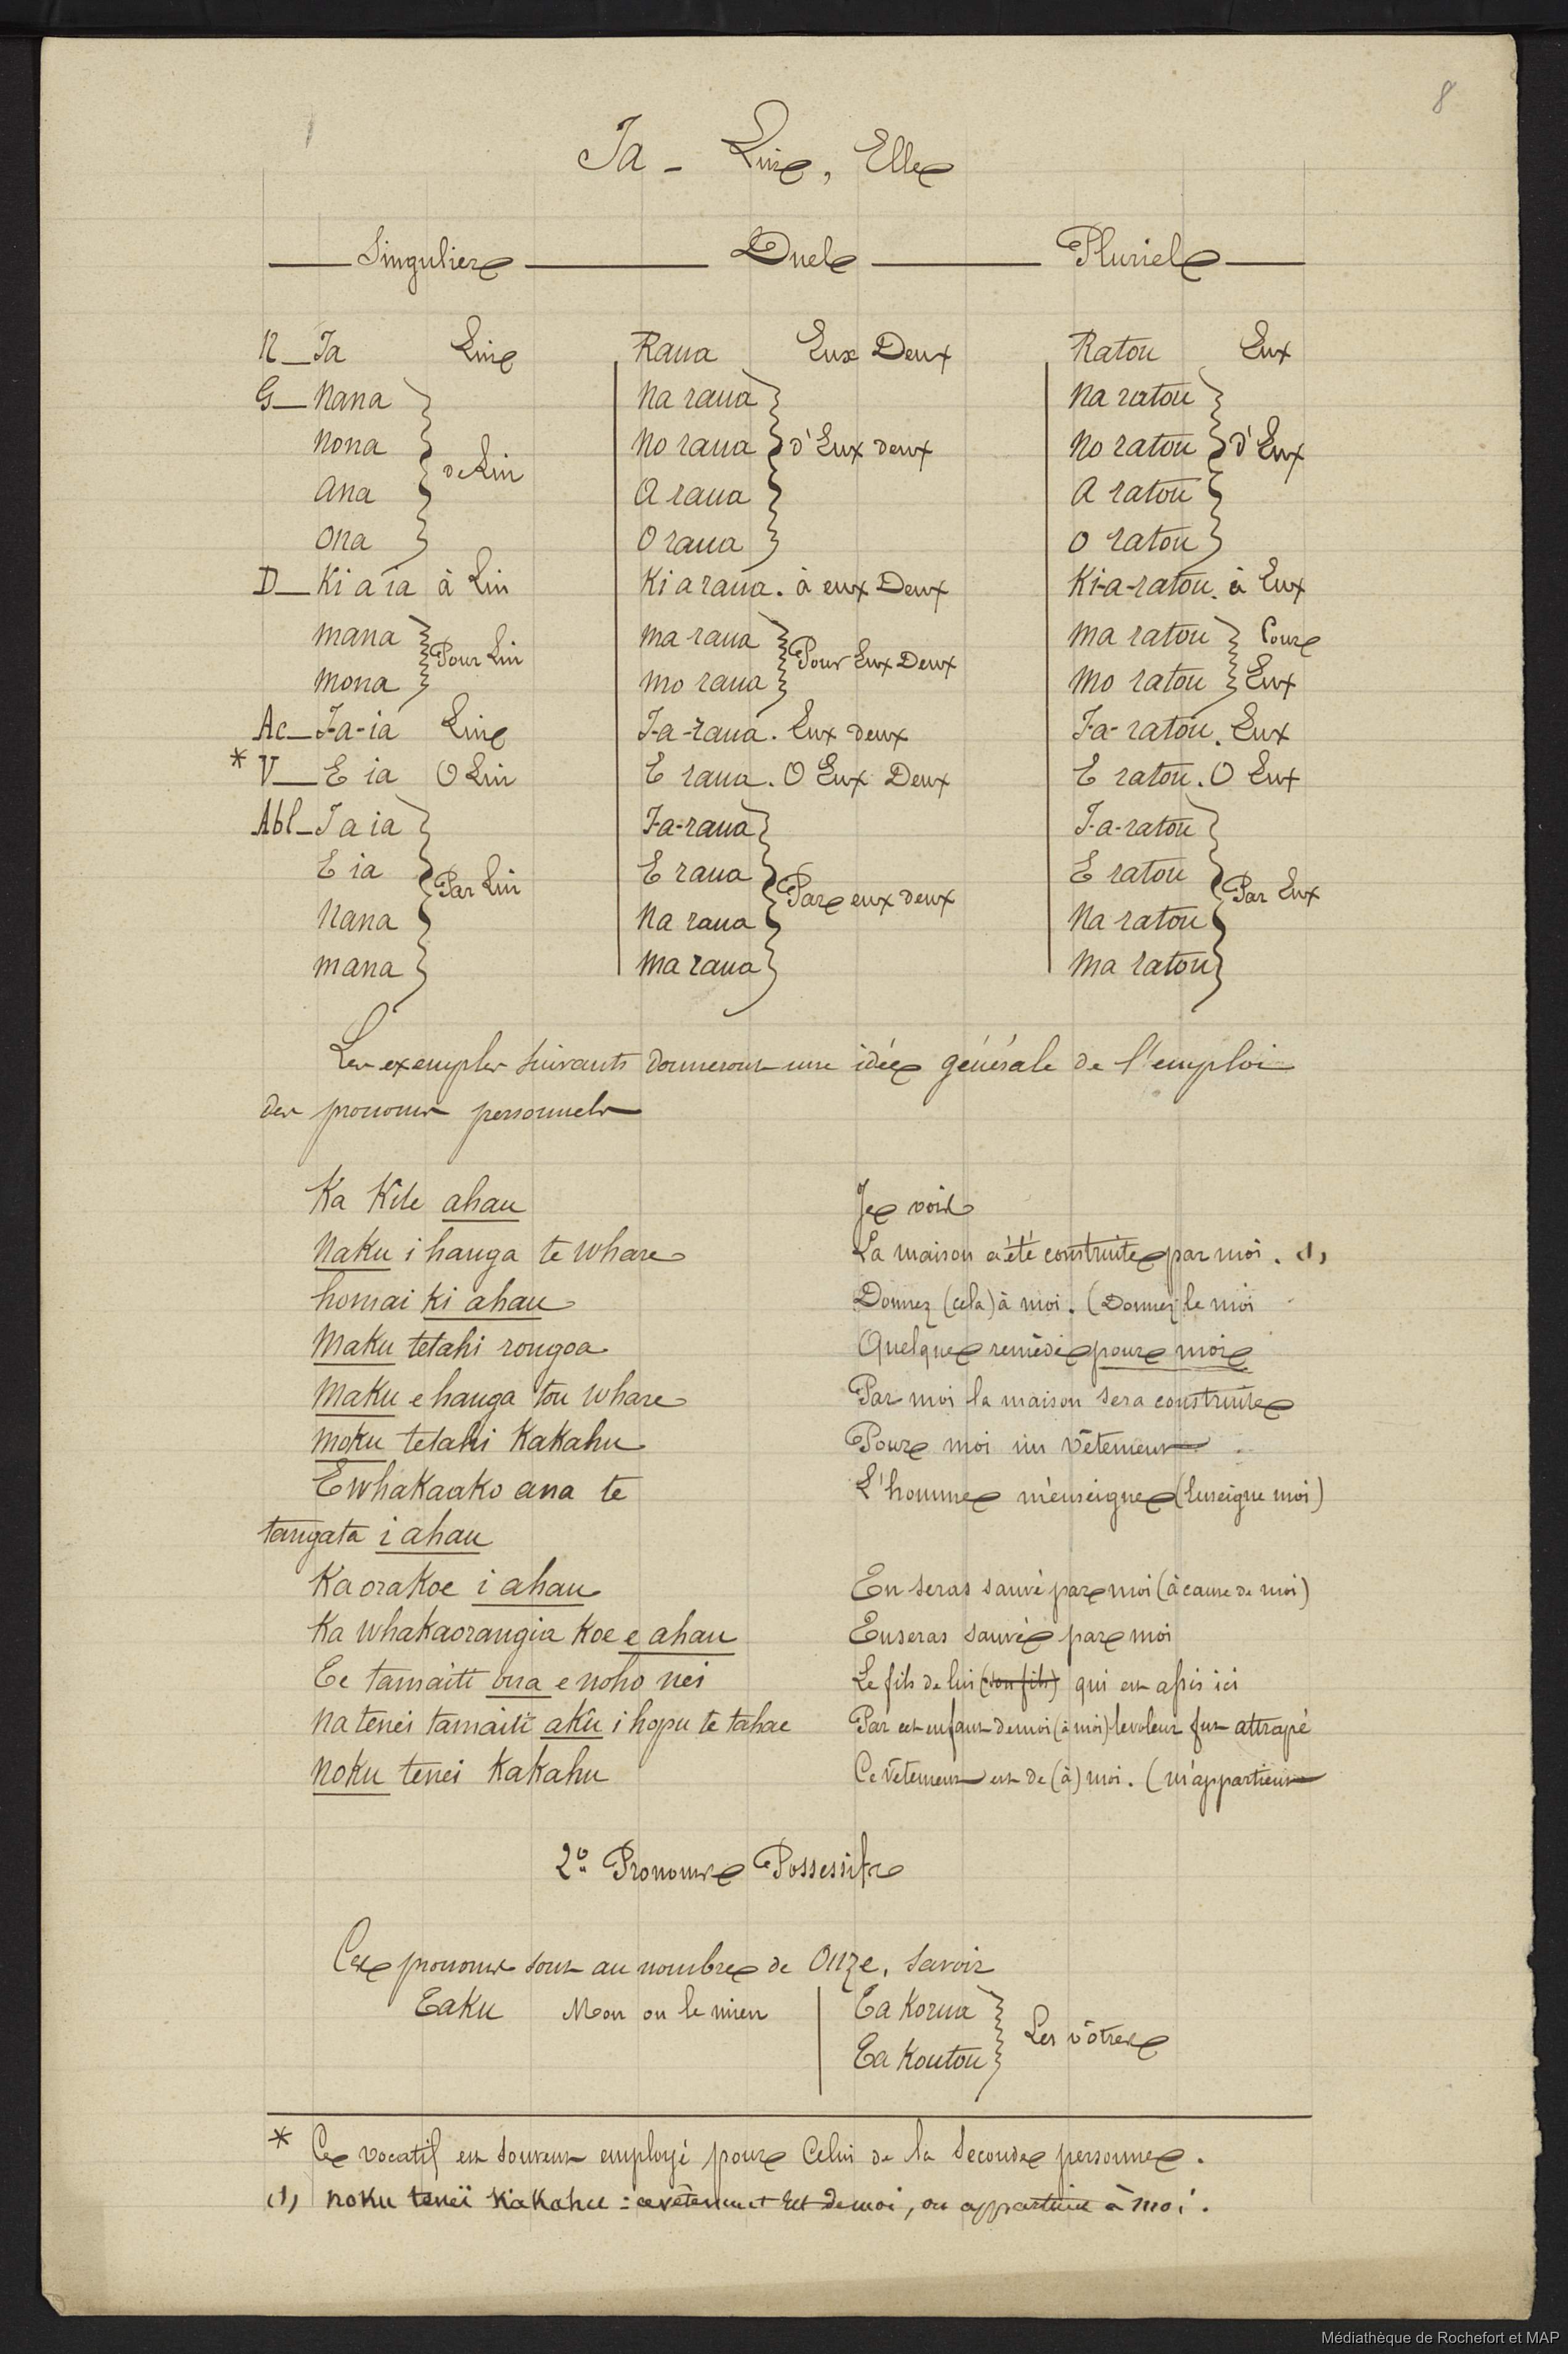 8
Ia - Lui, Elle
Singulier Duel Pluriel
N_Ia Lui Raua Eux Deux Ratou Eux
G_Nana Na raua Na ratou
Nona de Lui No raua d'Eux deux No ratou d'Eux
Ana A raua A ratou
Ona O raua O ratou
D_Ki a ia à Lui Ki a raua. à eux Deux Ki-a-ratou. à Eux
Mana Pour Lui Ma raua Pour Eux Deux Ma ratou Pour
Mona Mo raua Mo ratou Eux
Ac_I-a-ia Lui I-a-raua. Eux deux I-a-ratou. Eux
* V_E ia O Lui E raua. O Eux Deux E ratou. O Eux
Abl_I a ia I-a-raua I-a-ratou
E ia Par Lui E raua Par eux deux E ratou Par Eux
Nana Na raua Na ratou
Mana Ma raua Ma ratou
Les exemples suivants donneront une idée générale de l'emploi
des pronoms personnels
Ka Kite ahau Je vois
Naku i hanga te whare La maison a été construite par moi. (1)
homai ki ahau Donnez (cela) à moi. (Donnez le moi
Maku tetahi rongoa Quelque remède pour moi
Maku e hanga tou whare Par moi la maison sera construite
Moku tetahi Kakahu Pour moi un vêtement
E whakaako ana te L'homme m'enseigne (Enseigne moi)
tangata i ahau
Ka ora Koe i ahau Tu seras sauvé par moi (à cause de moi)
Ka whakaorangia Koe e ahau Tu seras sauvé par moi
Te tamaiti ona e noho nei Le fils de lui (son fils) qui est assis ici
Na tenei tamaiti aku i hopu te tahae Par cet enfant de moi (à moi) le voleur fut attrapé
Noku tenei Kakahu Ce vêtement est de (à) moi. (m'appartient
2º Pronoms Possessifs
Ces pronoms sont au nombre de Onze, savoir
Taku Mon ou le mien Ta Korua
Ta Koutou Les vôtres
* Ce vocatif est souvent employé pour Celui de la Seconde personne.
(1) Noku teneï KaKahu : ce vêtement est de moi, ou appartient à moi.
Médiathèque de Rochefort et MAP